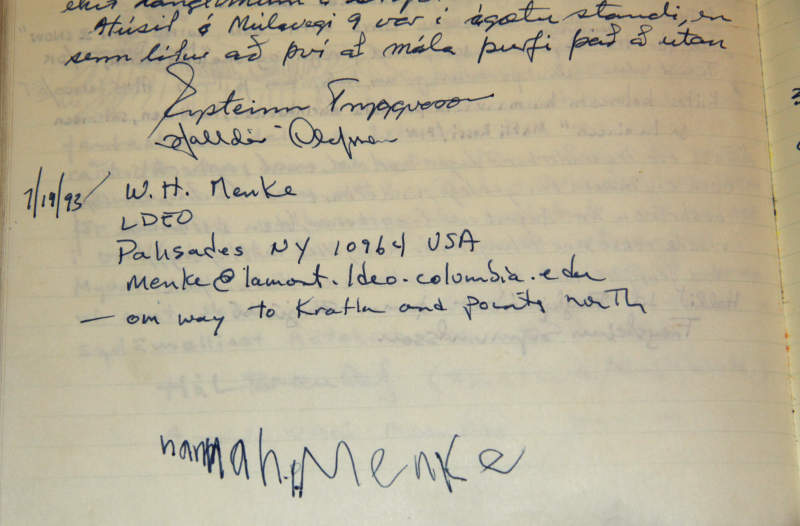 Aðúsil á Múlavegi 9 var í ágætu standi, en
senn líður að því að mála þurfi það að utan
Eysteinn Tryggvason
Halldór Ólafsson
7/19/93/ W.H. Menke
LDEO
Palisades NY 10964 USA
Menke@lamont.ldeo.columbia.edu
— on way to Krafla and points north
hannah. Menke